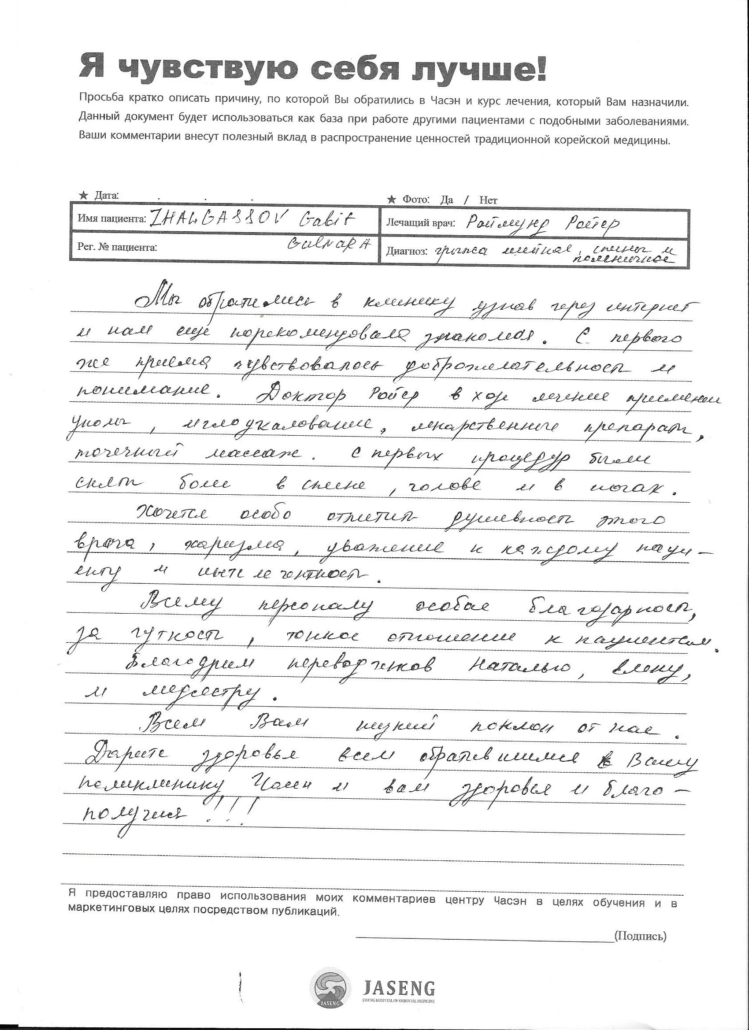 Я чувствую себя лучше!
Просьба кратко описать причину, по которой Вы обратились в Часэн и курс лечения, который Вам назначили.
Данный документ будет использоваться как база при работе другими пациентами с подобными заболеваниями.
Ваши комментарии внесут полезный вклад в распространение ценностей традиционной корейской медицины.
★ Дата: . . . ★ Фото: Да / Нет
Имя пациента: ZHALGASSOV Gabit Лечащий врач: Раймунд Ройер
Рег. № пациента: GulnaRA Диагноз: грыжа шейная, спины и
поясничное
Мы обратились в клинику узнав через интернет
и нам еще порекомендовала знакомая. С первого
же приема чувствовалось доброжелательность и
понимание. Доктор Ройер в ходе лечение применил
уколы, иглоукалование, лекарственные препараты,
точечный массаж. С первых процедур были
сняты боли в спине, голове и в ногах.
Хочется особо отметить душевность этого
врача, харизма, уважение к каждому паци-
енту и интелегентность.
Всему персоналу особая благодарность,
за чуткость, тонкое отношение к пациентам.
Благодрим переводчиков Наталью, Елену,
и медсестру.
Всем Вам низкий поклон от нас.
Дарите здоровья всем обратившимся в Вашу
поликлинику Часен и вам здоровья и благо-
получия!!!
Я предоставляю право использования моих комментариев центру Часэн в целях обучения и в
маркетинговых целях посредством публикаций.
(Подпись)
JASENG
JASENG